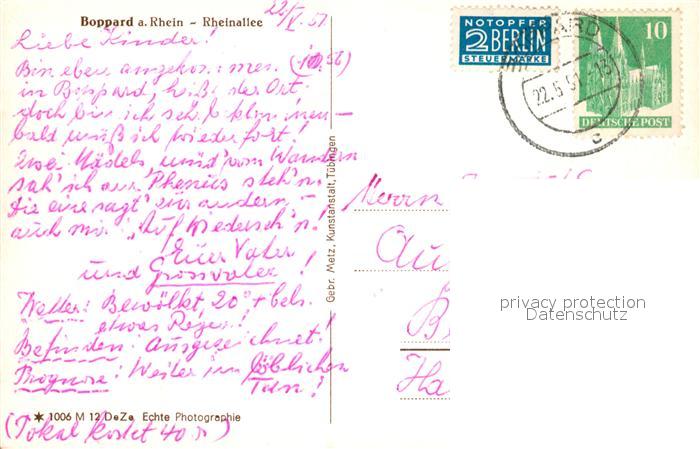 Boppard a. Rhein – Rheinallee
22/V. 51
Liebe Kinder!
Bin eben angekommen
in Boppard, heißt der Ort,
doch bin ich schon
bald muß ich wieder fort!
Zwei Mädels, vom Wandern
sah ich am steh'n.
Die eine sagt' zur andern –
auch mir: "Auf Wiederseh'n!
Euer Vater
und Grossvater!
Wetter: Bewölkt, 20° + Cels.
etwas Regen!
Befinden: Ausgezeichnet!
Prognose: Weiter im löblichen
Tun!
✶ 1006 M 12 DeZe Echte Photographie
(Pokal kostet 40 )
Gebr. Metz, Kunstanstalt, Tübingen
NOTOPFER
2 BERLIN
STEUERMARKE
22.5.51.-13
c
10
DEUTSCHE POST
Herrn
Au
B
Ha
privacy protection
Datenschutz